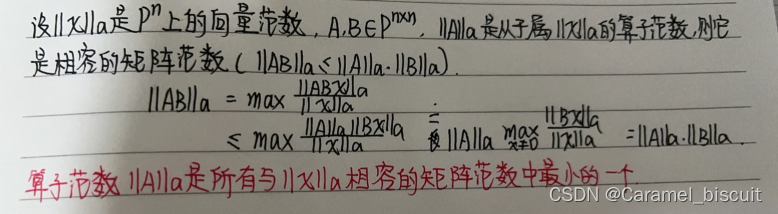 设||X||a是Pⁿ上的向量范数, A,B∈Pⁿˣⁿ, ||A||a是从于属||X||a的算子范数,则它
是相容的矩阵范数(||AB||a≤||A||a·||B||a).
||AB||a = max ||ABX||a / ||X||a
≤ max ||A||a||BX||a / ||X||a = ||A||a max x≠0 ||BX||a / ||X||a = ||A||a·||B||a.
算子范数||A||a是所有与||X||a相容的矩阵范数中最小的一个
CSDN @Caramel_biscuit